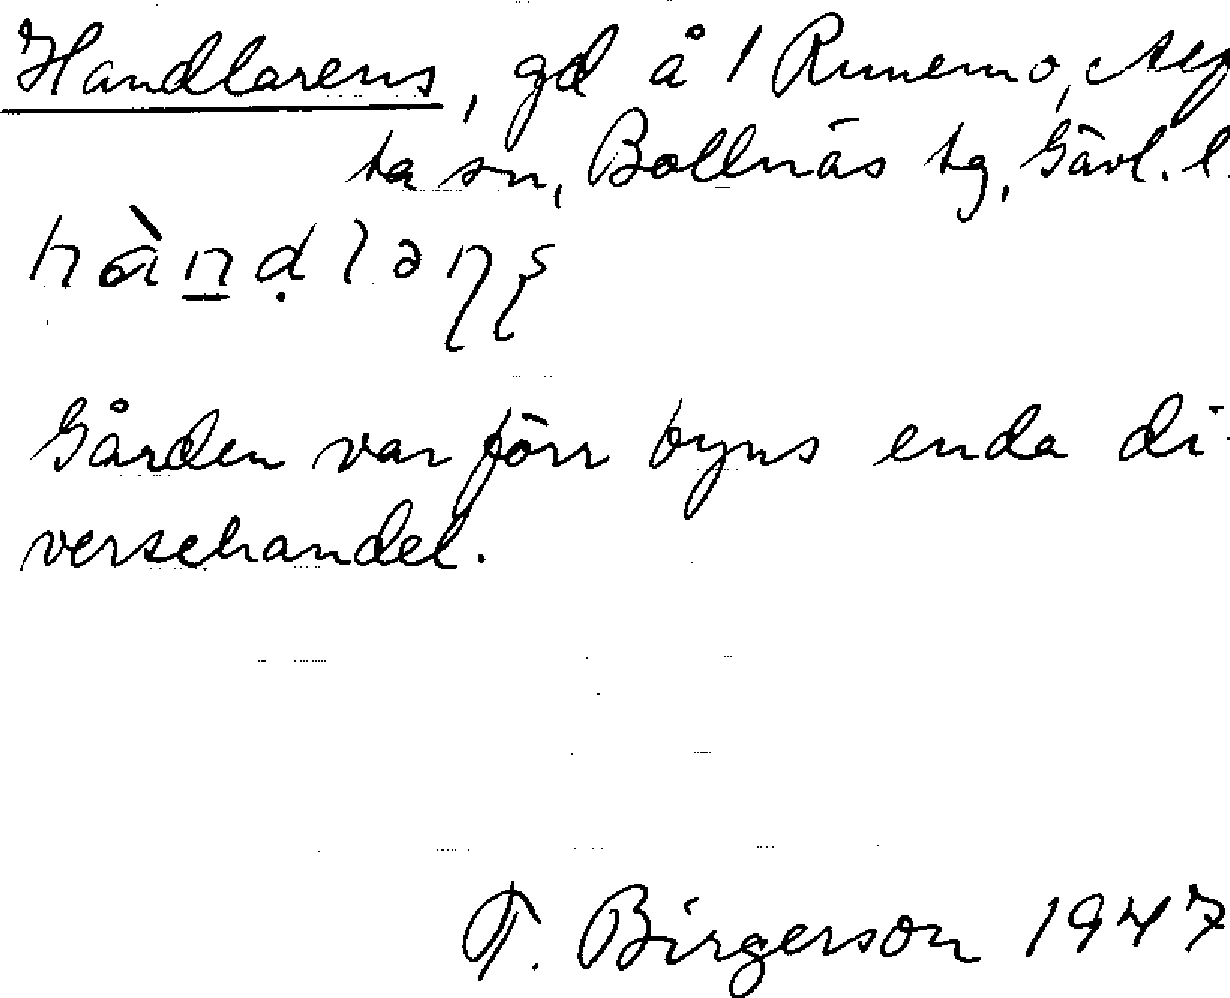 Handlarens, gd å 1 Runemo, Alf-
ta sn, Bollnäs tg, Gävl. l.
hàn̲ḍləṇṣ
Gården var förr byns enda di-
versehandel.
T. Birgerson 1947